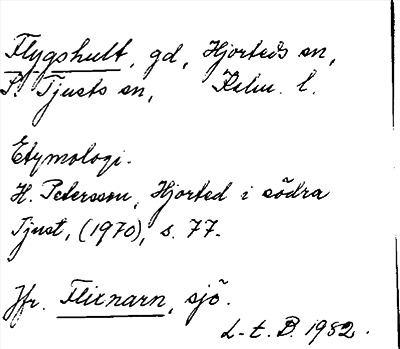 Flygshult, gd, Hjorteds sn,
S. Tjusts sn, Kalm. l.
Etymologi.
H. Petersson, Hjorted i södra
Tjust, (1970), s. 77.
Jfr. Flixnarn, sjö.
L-t. B. 1982.